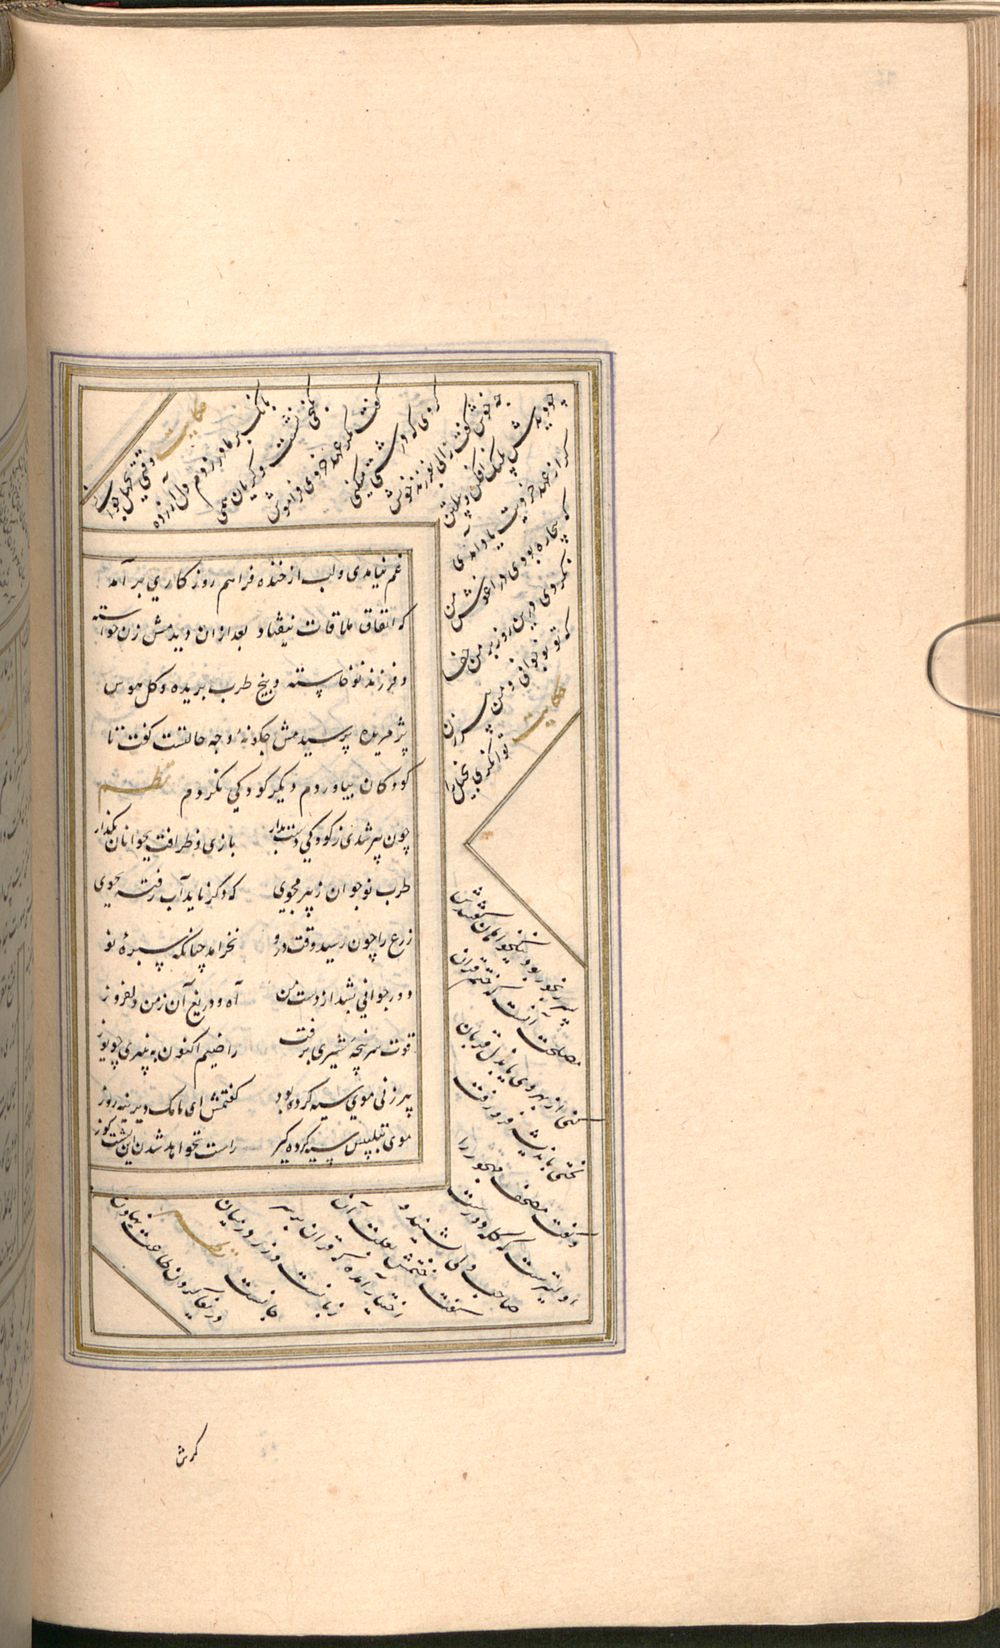 غم نیامدی و لب از خنده فراهم روزکاری بر آمد
که اتفاق ملاقات نیفتاد بعد از ان دیدمش زن خواسته
و فرزند نو خاسته و بیخ طرب بریده و کل هوس
پژمریده پرسیدمش چکونهٔ و چه حالتست کفت تا
کودکان بیاوردم دیکر کودکی نکردم نظم
چون پیر شدی ز کودکی دست بدار بازی و ظرافت بجوانان بکذار
طرب نوجوان ز پیر مجوی که دکر ناید آب رفته بجوی
زرع را چون رسید وقت درو نخرامد چنانکه سبزهٔ نو
دور جوانی بشد از دست من آه و دریغ آن زمن دلفروز
قوت سرپنجهٔ شیری برفت راضیم اکنون به پنیری چو یوز
پیر زنی موی سیه کرده بود کفتمش ای مامک دیرینه روز
موی بتلبیس سیه کرده کیر راست نخواهد شدن این پشت کوز
حکایت وقتی بجهل جوانی
بانک بر مادر زدم دل آزرده
بکنجی نشست و کریان همی
کفت مکر عهد خردی فراموش
کردی که درشتی میکنی
چه خوش کفت زالی بفرزند خویش
چو دیدش پلنک افکن و پیلتن
کر از عهد خردیت یاد آمدی
که بیچاره بودی در اغوش من
نکردی درین روز بر من جفا
که تو شیر مردی و من پیر زن
حکایت توانکری بخیل را
پسر رنجور بود نیکخواهان کفتندش
مصلحت آنست که ختم قرآن
کنی از بهر وی یا بذل قربان
لختی باندیشه فرو رفت
و کفت مصحف مهجور
اولیترست که کله دور
صاحب دلی بشنید و
کفت ختمش بعلت آن
اختیار آمد که قرآن بر سر
زبانست و زر در میان
جان نظم
دریغا کردن طاعت نهادن
کرش